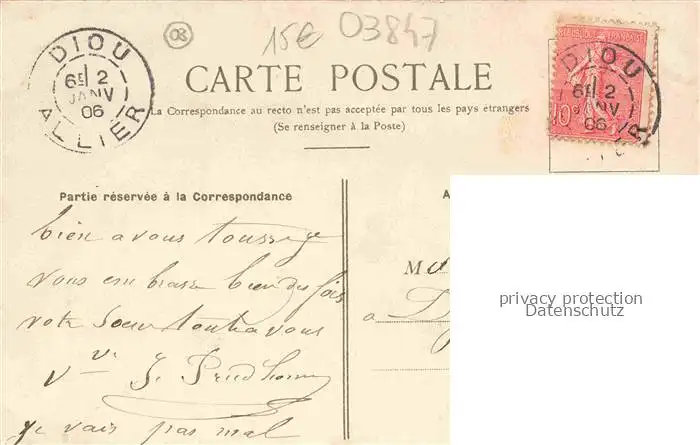 DIOU
6E 2
JANV
06
ALLIER
03
15€ 03847
REPUBLIQUE FRANÇAISE
10
DIOU
6E 2
JANV
06
CARTE POSTALE
La Correspondance au recto n'est pas acceptée par tous les pays étrangers
(Se renseigner à la Poste)
Partie réservée à la Correspondance
A
bien a vous tousse je
vous embrasse bien des fois
votre Soeur toute a vous
Vve J. Prudhomme
je vais pas mal
M
a D
privacy protection
Datenschutz